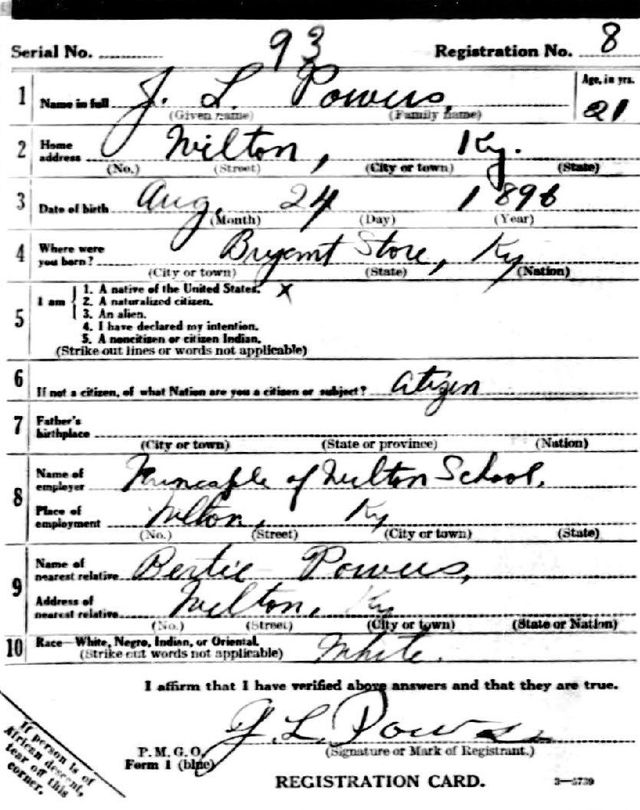 Serial No. 93 Registration No. 8
1 Name in full J. L. Powers, Age, in yrs.
(Given name) (Family name) 21
2 Home address Wilton, Ky.
(No.) (Street) (City or town) (State)
3 Date of birth Aug. 24 1896
(Month) (Day) (Year)
4 Where were you born? Bryant Store, Ky
(City or town) (State) (Nation)
5 I am 1. A native of the United States. x
2. A naturalized citizen.
3. An alien.
4. I have declared my intention.
5. A noncitizen or citizen Indian.
(Strike out lines or words not applicable)
6 If not a citizen, of what Nation are you a citizen or subject? Citizen
7 Father's birthplace
(City or town) (State or province) (Nation)
8 Name of employer Principle of Wilton School.
Place of employment Wilton, Ky
(No.) (Street) (City or town) (State)
9 Name of nearest relative Bertie Powers,
Address of nearest relative Wilton, Ky
(No.) (Street) (City or town) (State or Nation)
10 Race—White, Negro, Indian, or Oriental. White.
(Strike out words not applicable)
I affirm that I have verified above answers and that they are true.
J. L. Powers
P. M. G. O. (Signature or Mark of Registrant.)
Form 1 (blue)
REGISTRATION CARD. 3—5739
If person is of
African descent,
tear off this
corner.